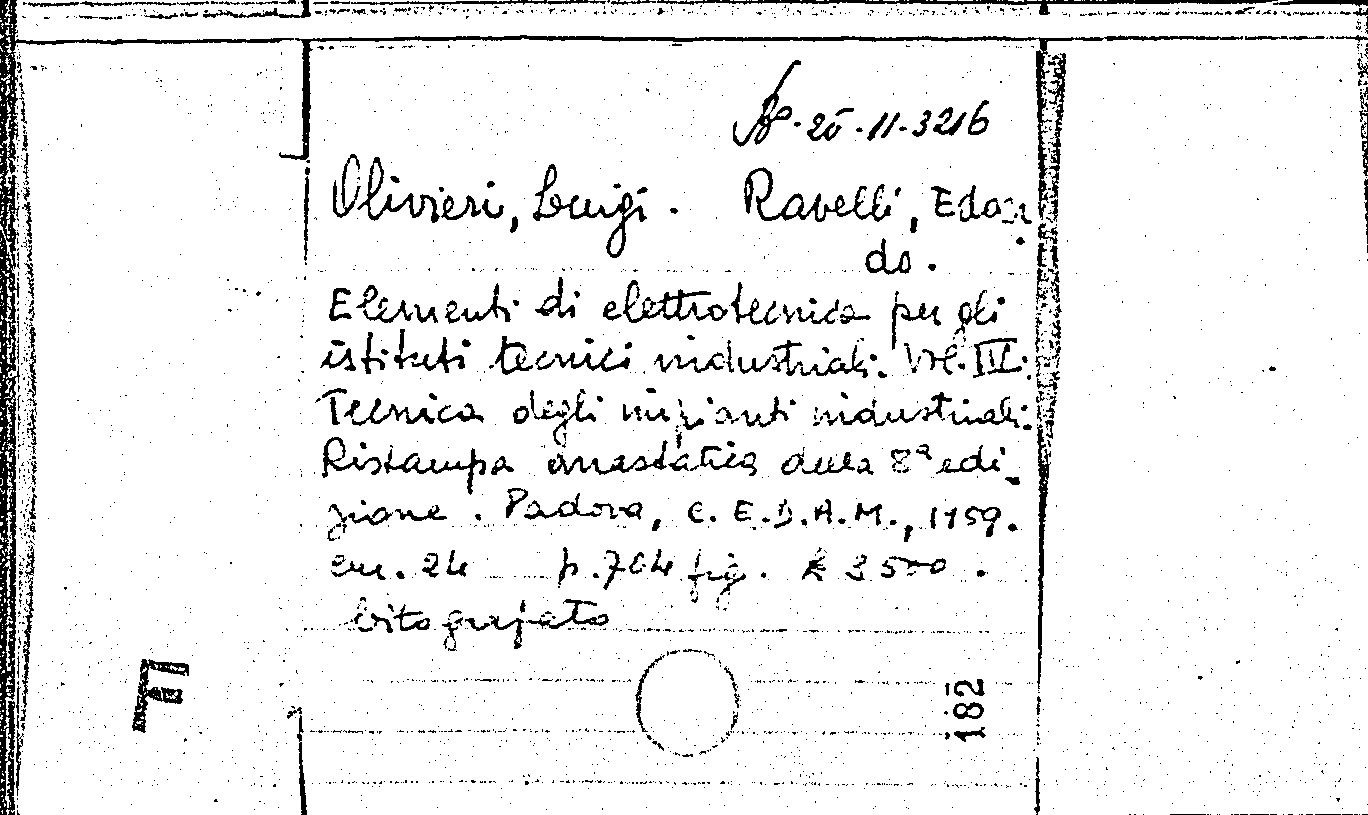 20.11.3216
Olivieri, Luigi. Ravelli, Edoar
do.
Elementi di elettrotecnica per gli
istituti tecnici industriali. Vol. III:
Tecnica degli impianti industriali.
Ristampa anastatica della 8ª edi-
zione. Padova, C.E.D.A.M., 1959.
cm. 24 p. 704 fig. £ 3500.
Litografato
F
182